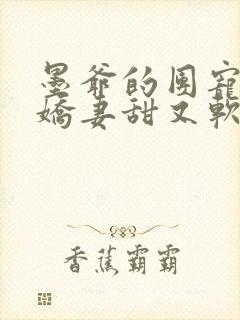 墨爺的团寵
嬌妻甜又軟
香蕉霸霸